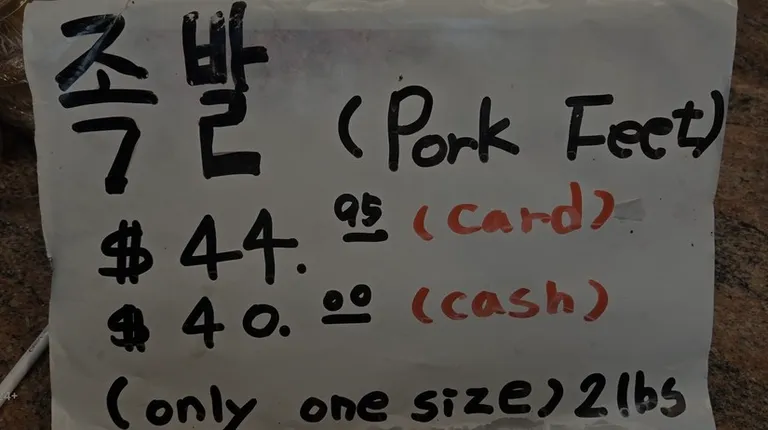 족발 (Pork Feet)
$44.95 (card)
$40.00 (cash)
(only one size) 2lbs